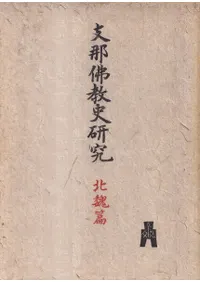 支那佛教史研究
北魏篇